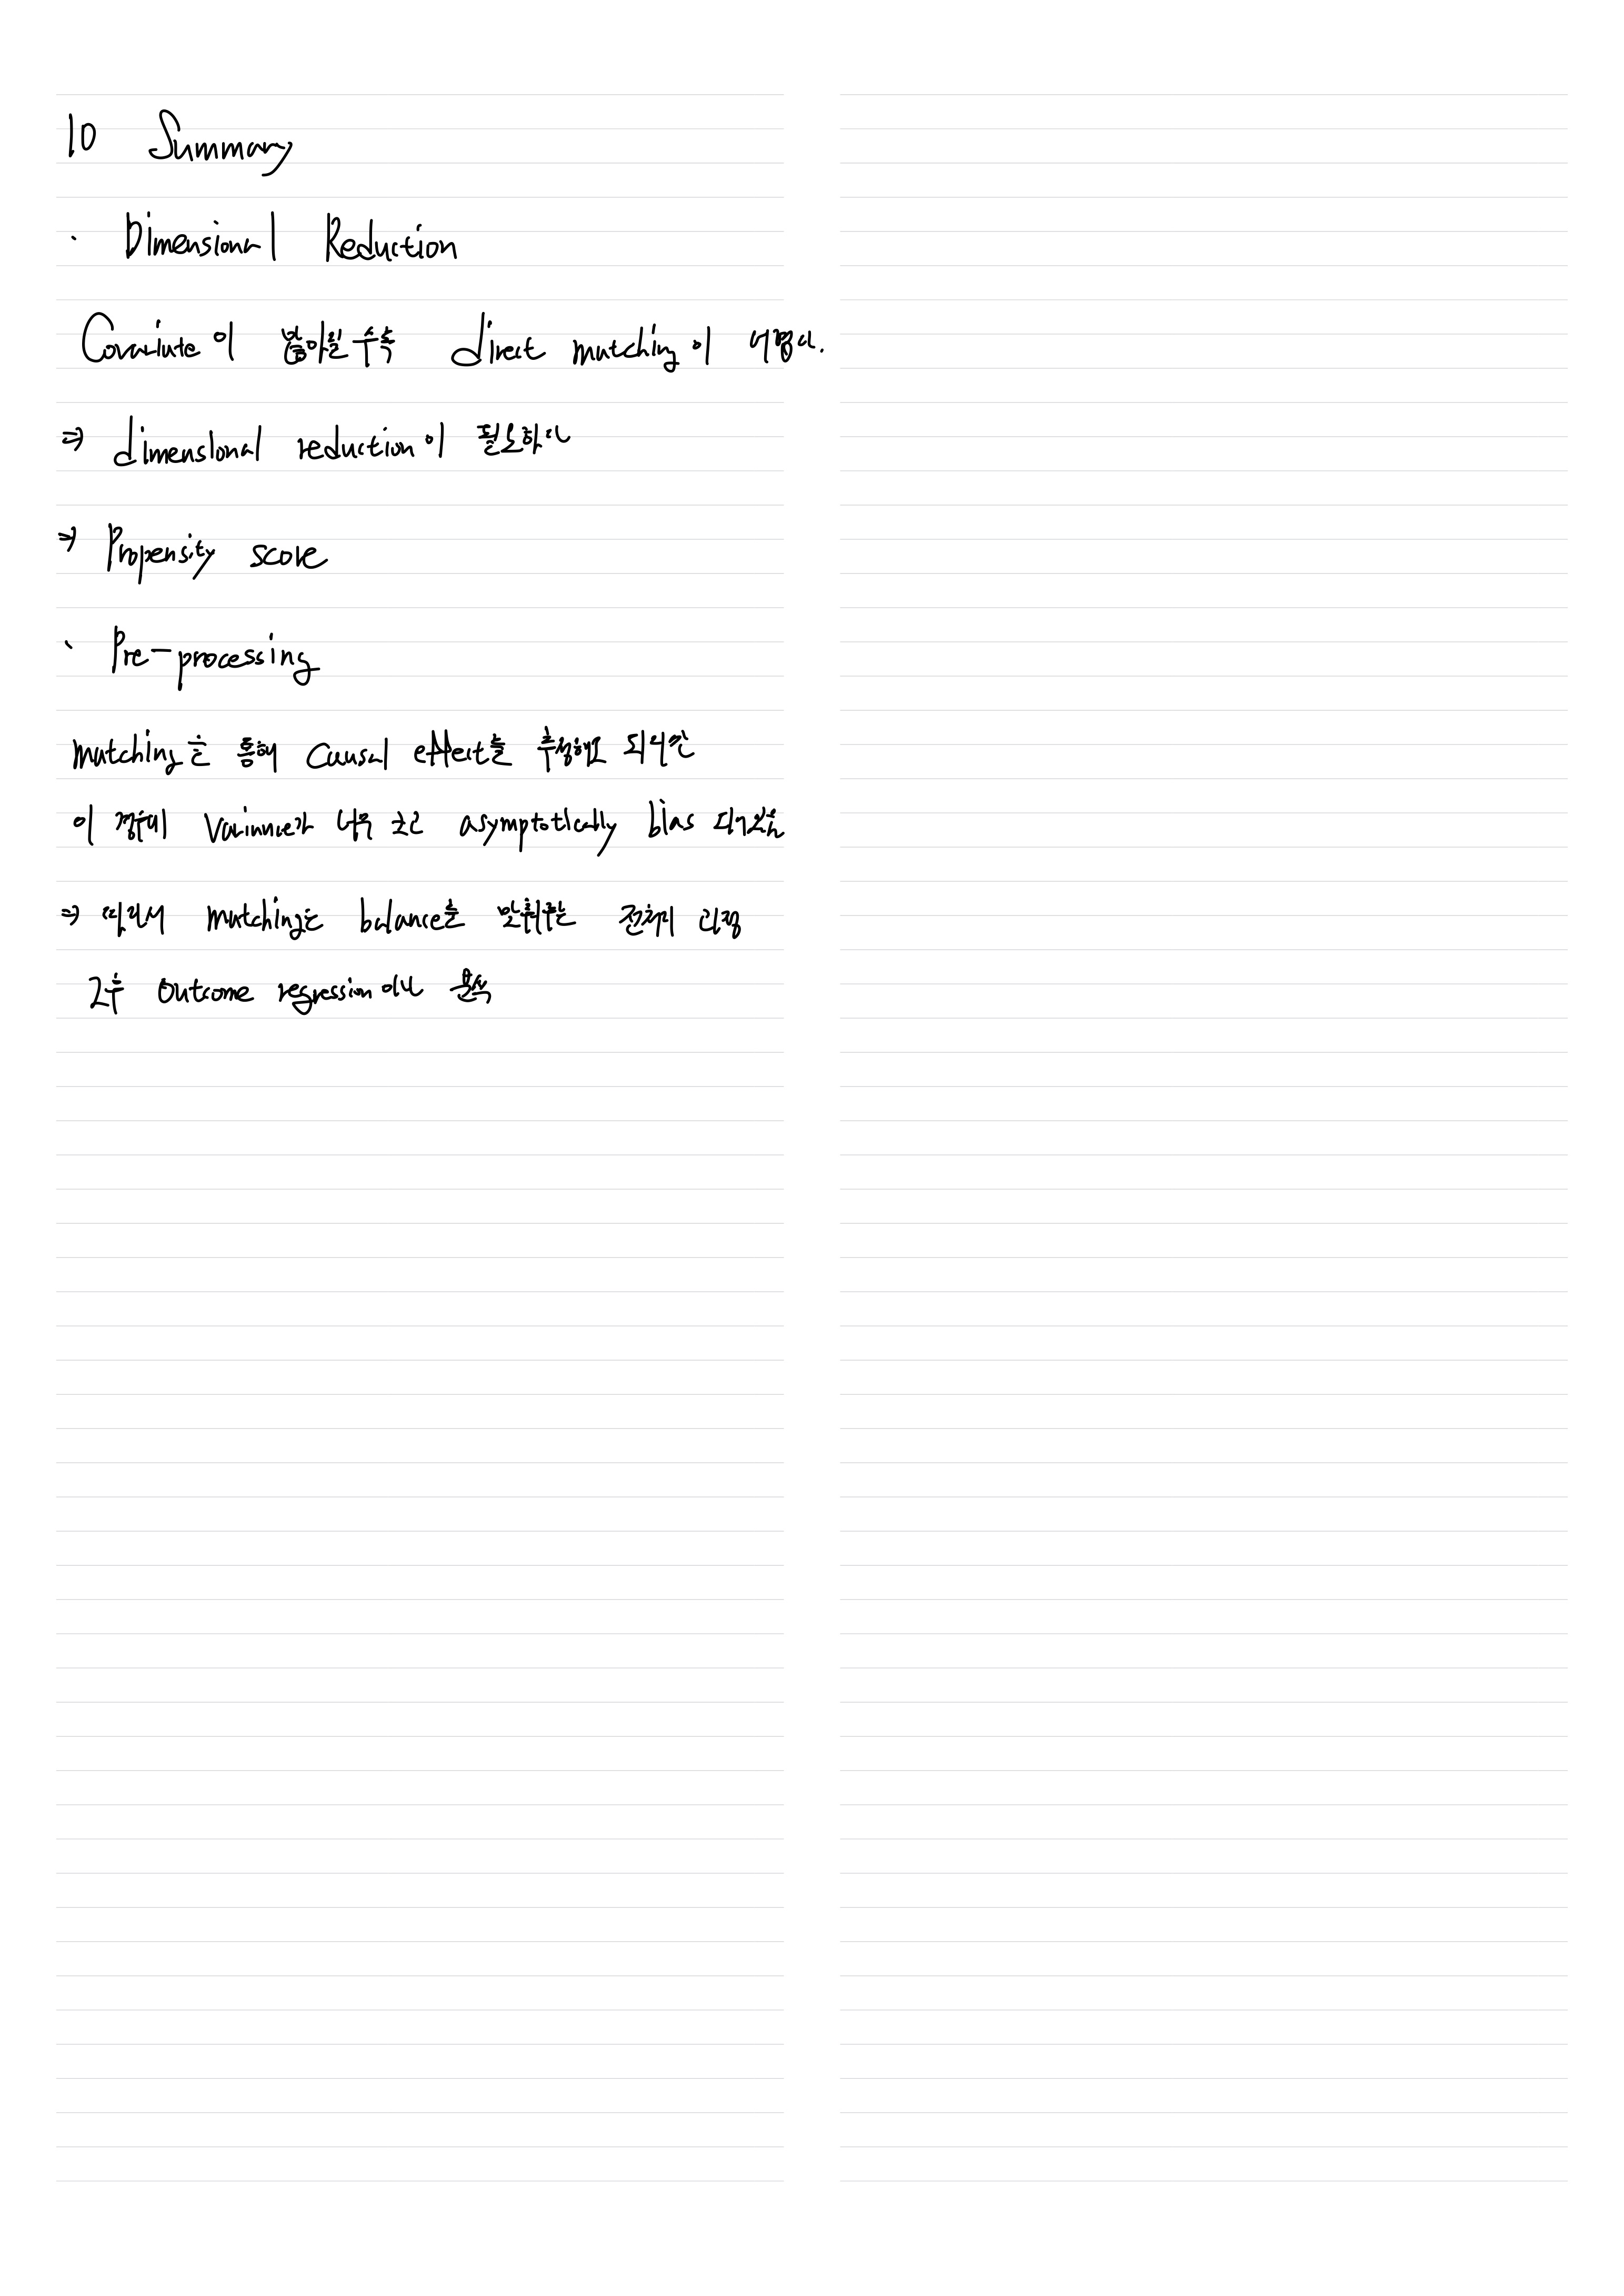 10 Summary
· Dimensional Reduction
Covariate이 많아질수록 direct matching이 어렵다.
⇒ dimensional reduction이 필요하다
⇒ Propensity score
· Pre-processing
matching을 통해 causal effect를 추정해도 되지만
이 경우에 variance가 너무 크고 asymptotically bias 되어있음
⇒ 따라서 matching은 balance를 맞춰주는 전처리 과정
2후 outcome regression이나 분석